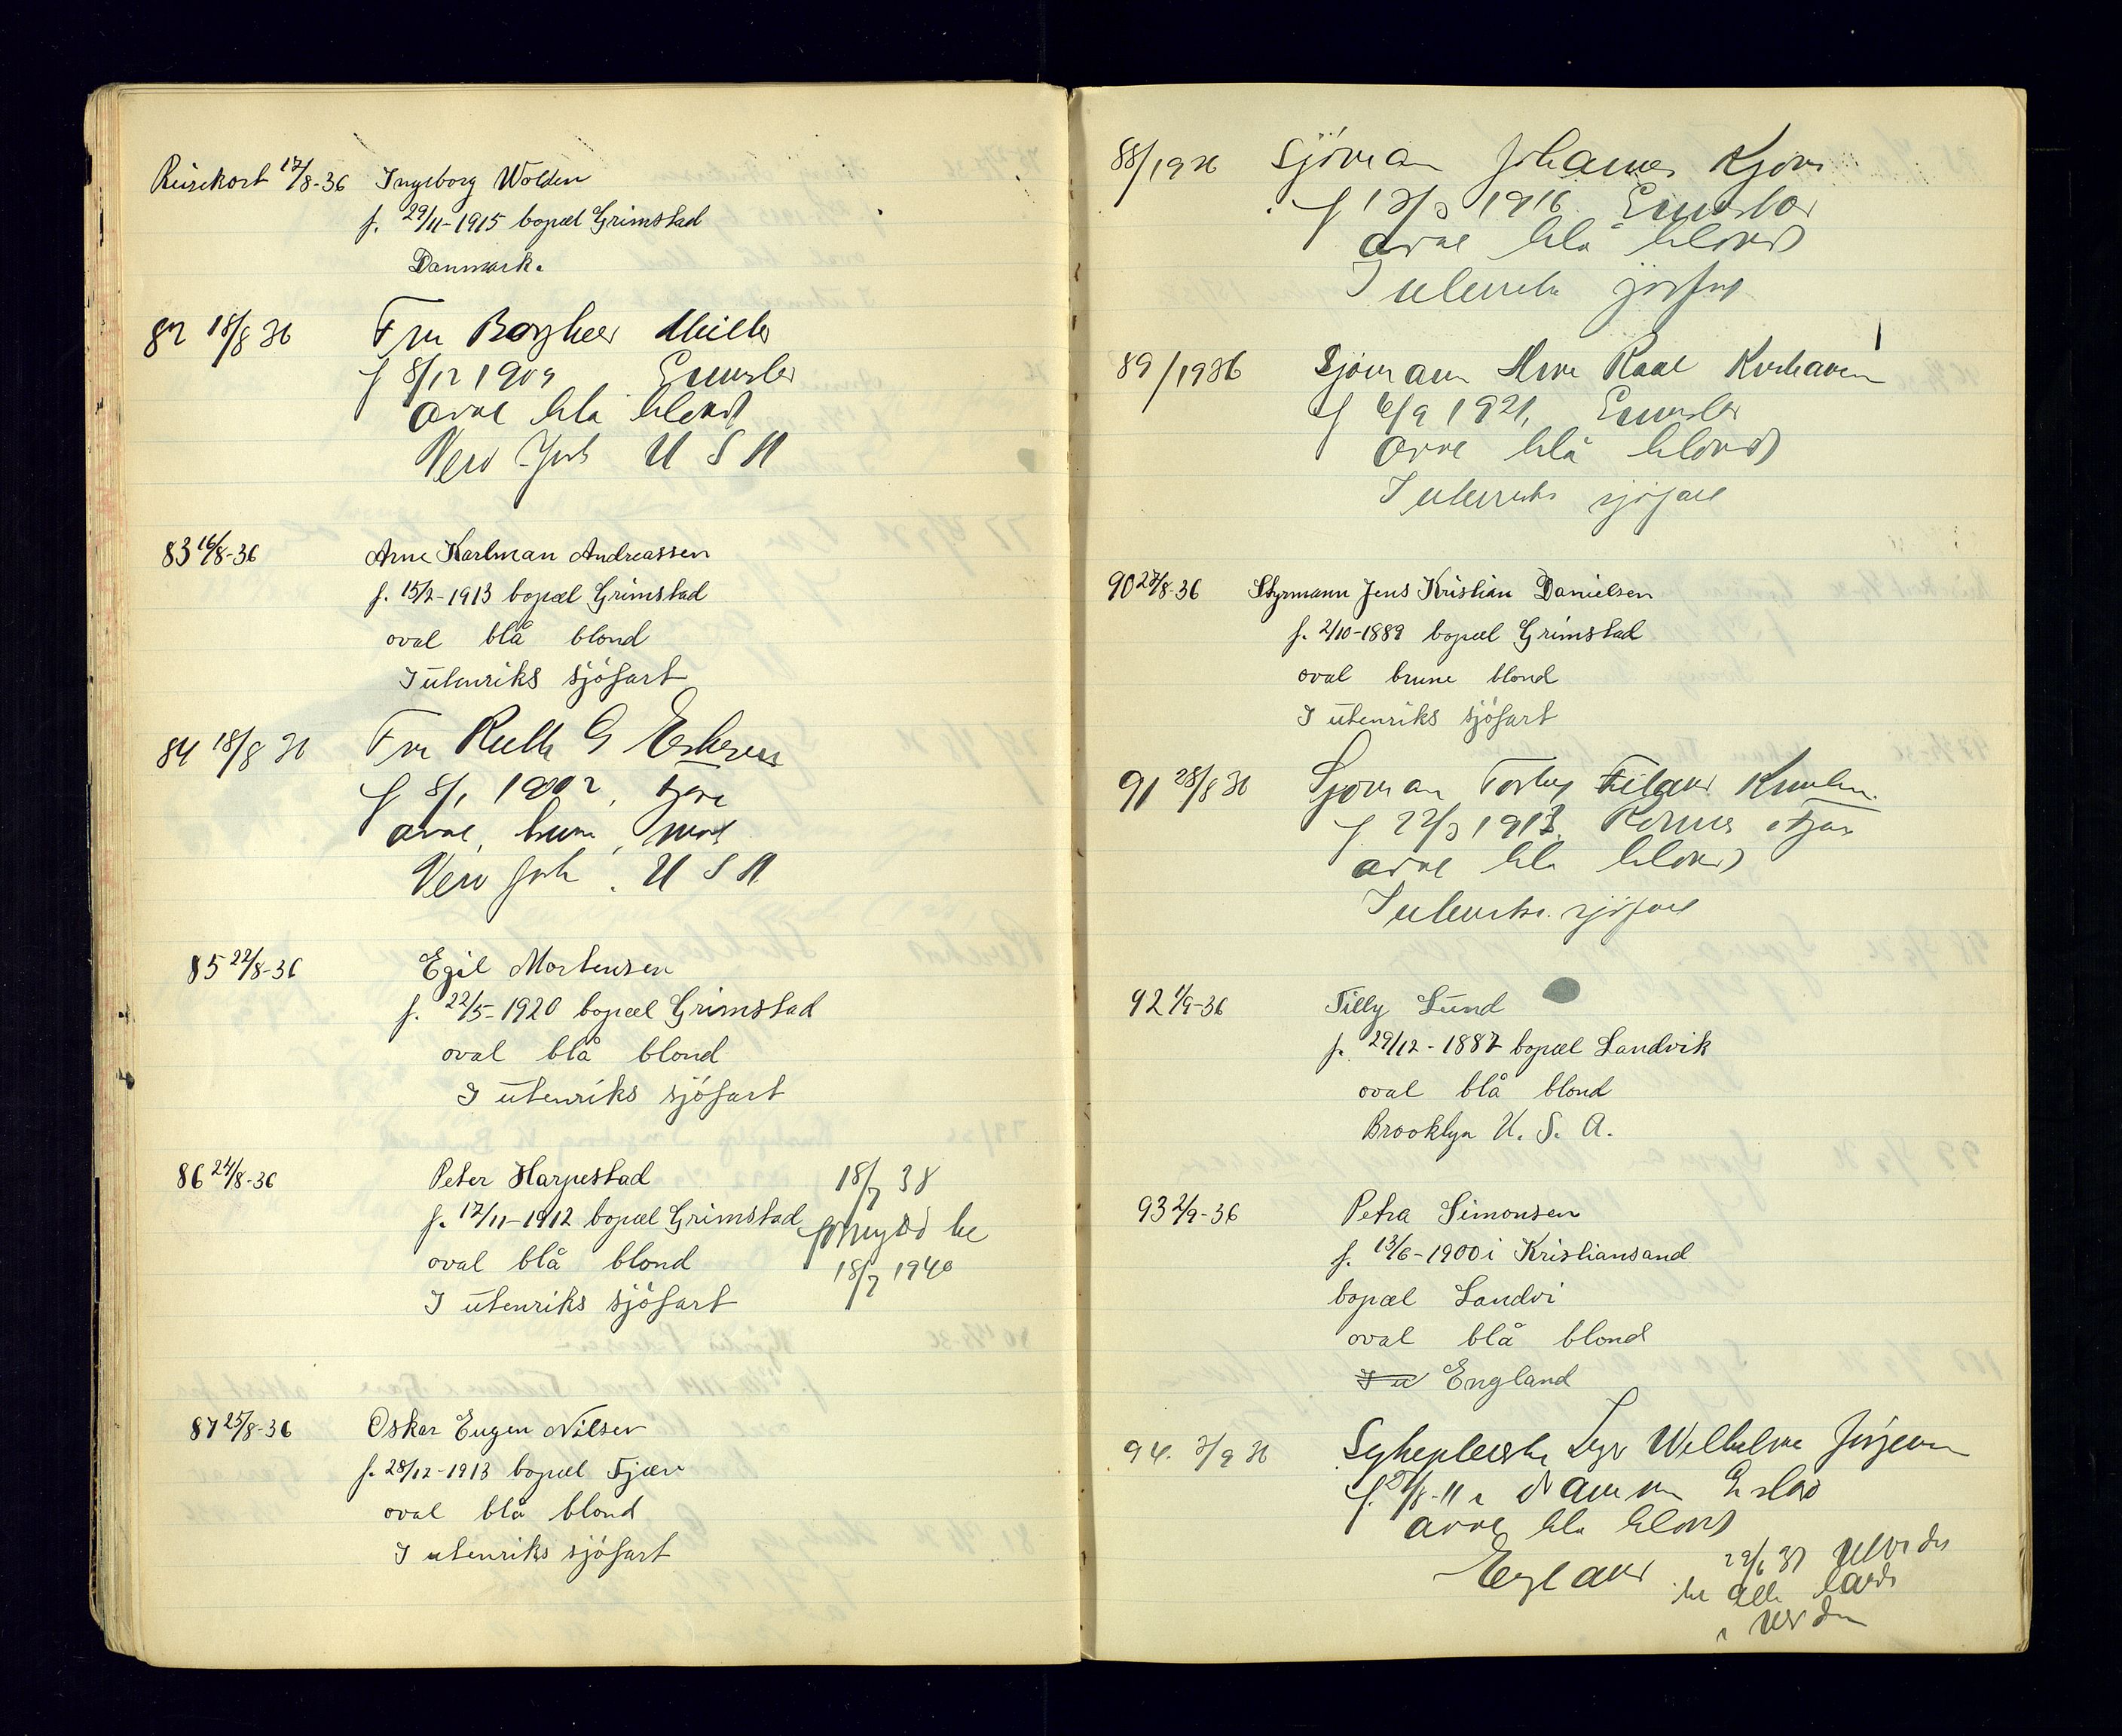 Reisekort 17/8-36 Ingeborg Wolden
f. 29/11-1915 bopæl Grimstad
Danmark.
82 18/8 36 Fru Borghild
f 8/12 1909
oval blå blond
New York U S A
83 16/8-36 Arne Karlman Andreassen
f. 15/2-1913 bopæl Grimstad
oval blå blond
I utenriks sjöfart
84 18/8 36 Fru Ruth G
f 8/1 1902,
oval, brun,
New York. U S A
85 22/8-36 Egil Mortensen
f. 22/5-1920 bopæl Grimstad
oval blå blond
I utenriks sjöfart
86 24/8-36 Peter Harpestad
f. 17/11-1912 bopæl Grimstad
oval blå blond
I utenriks sjöfart
18/7 38
fornyed til
18/7 1940
87 25/8-36 Oskar Eugen Nilsen
f. 28/12-1913 bopæl Fjære
oval blå blond
I utenriks sjöfart
88/1936 Sjöman Johannes
1916
oval blå blond
I utenriks sjöfart
89/1936 Sjöman
f 6/9 1921,
oval blå blond
I utenriks sjöfart
90 27/8-36 Styrmann Jens Kristian Danielsen
f. 2/10-1889 bopæl Grimstad
oval brune blond
I utenriks sjöfart
91 28/8 36 Sjöman
f 22/3 1913.
oval blå blond
I utenriks sjöfart
92 1/9-36 Tilly Lund
f. 29/12-1887 bopæl Landvik
oval blå blond
Brooklyn U. S. A.
93 2/9-36 Petra Simonsen
f. 13/6-1900 i Kristiansand
bopæl Landvi
oval blå blond
I u England
94. 3/9 36 Sykepleerske Wilhelmine
oval blå blond
England
til alle lande
i verden